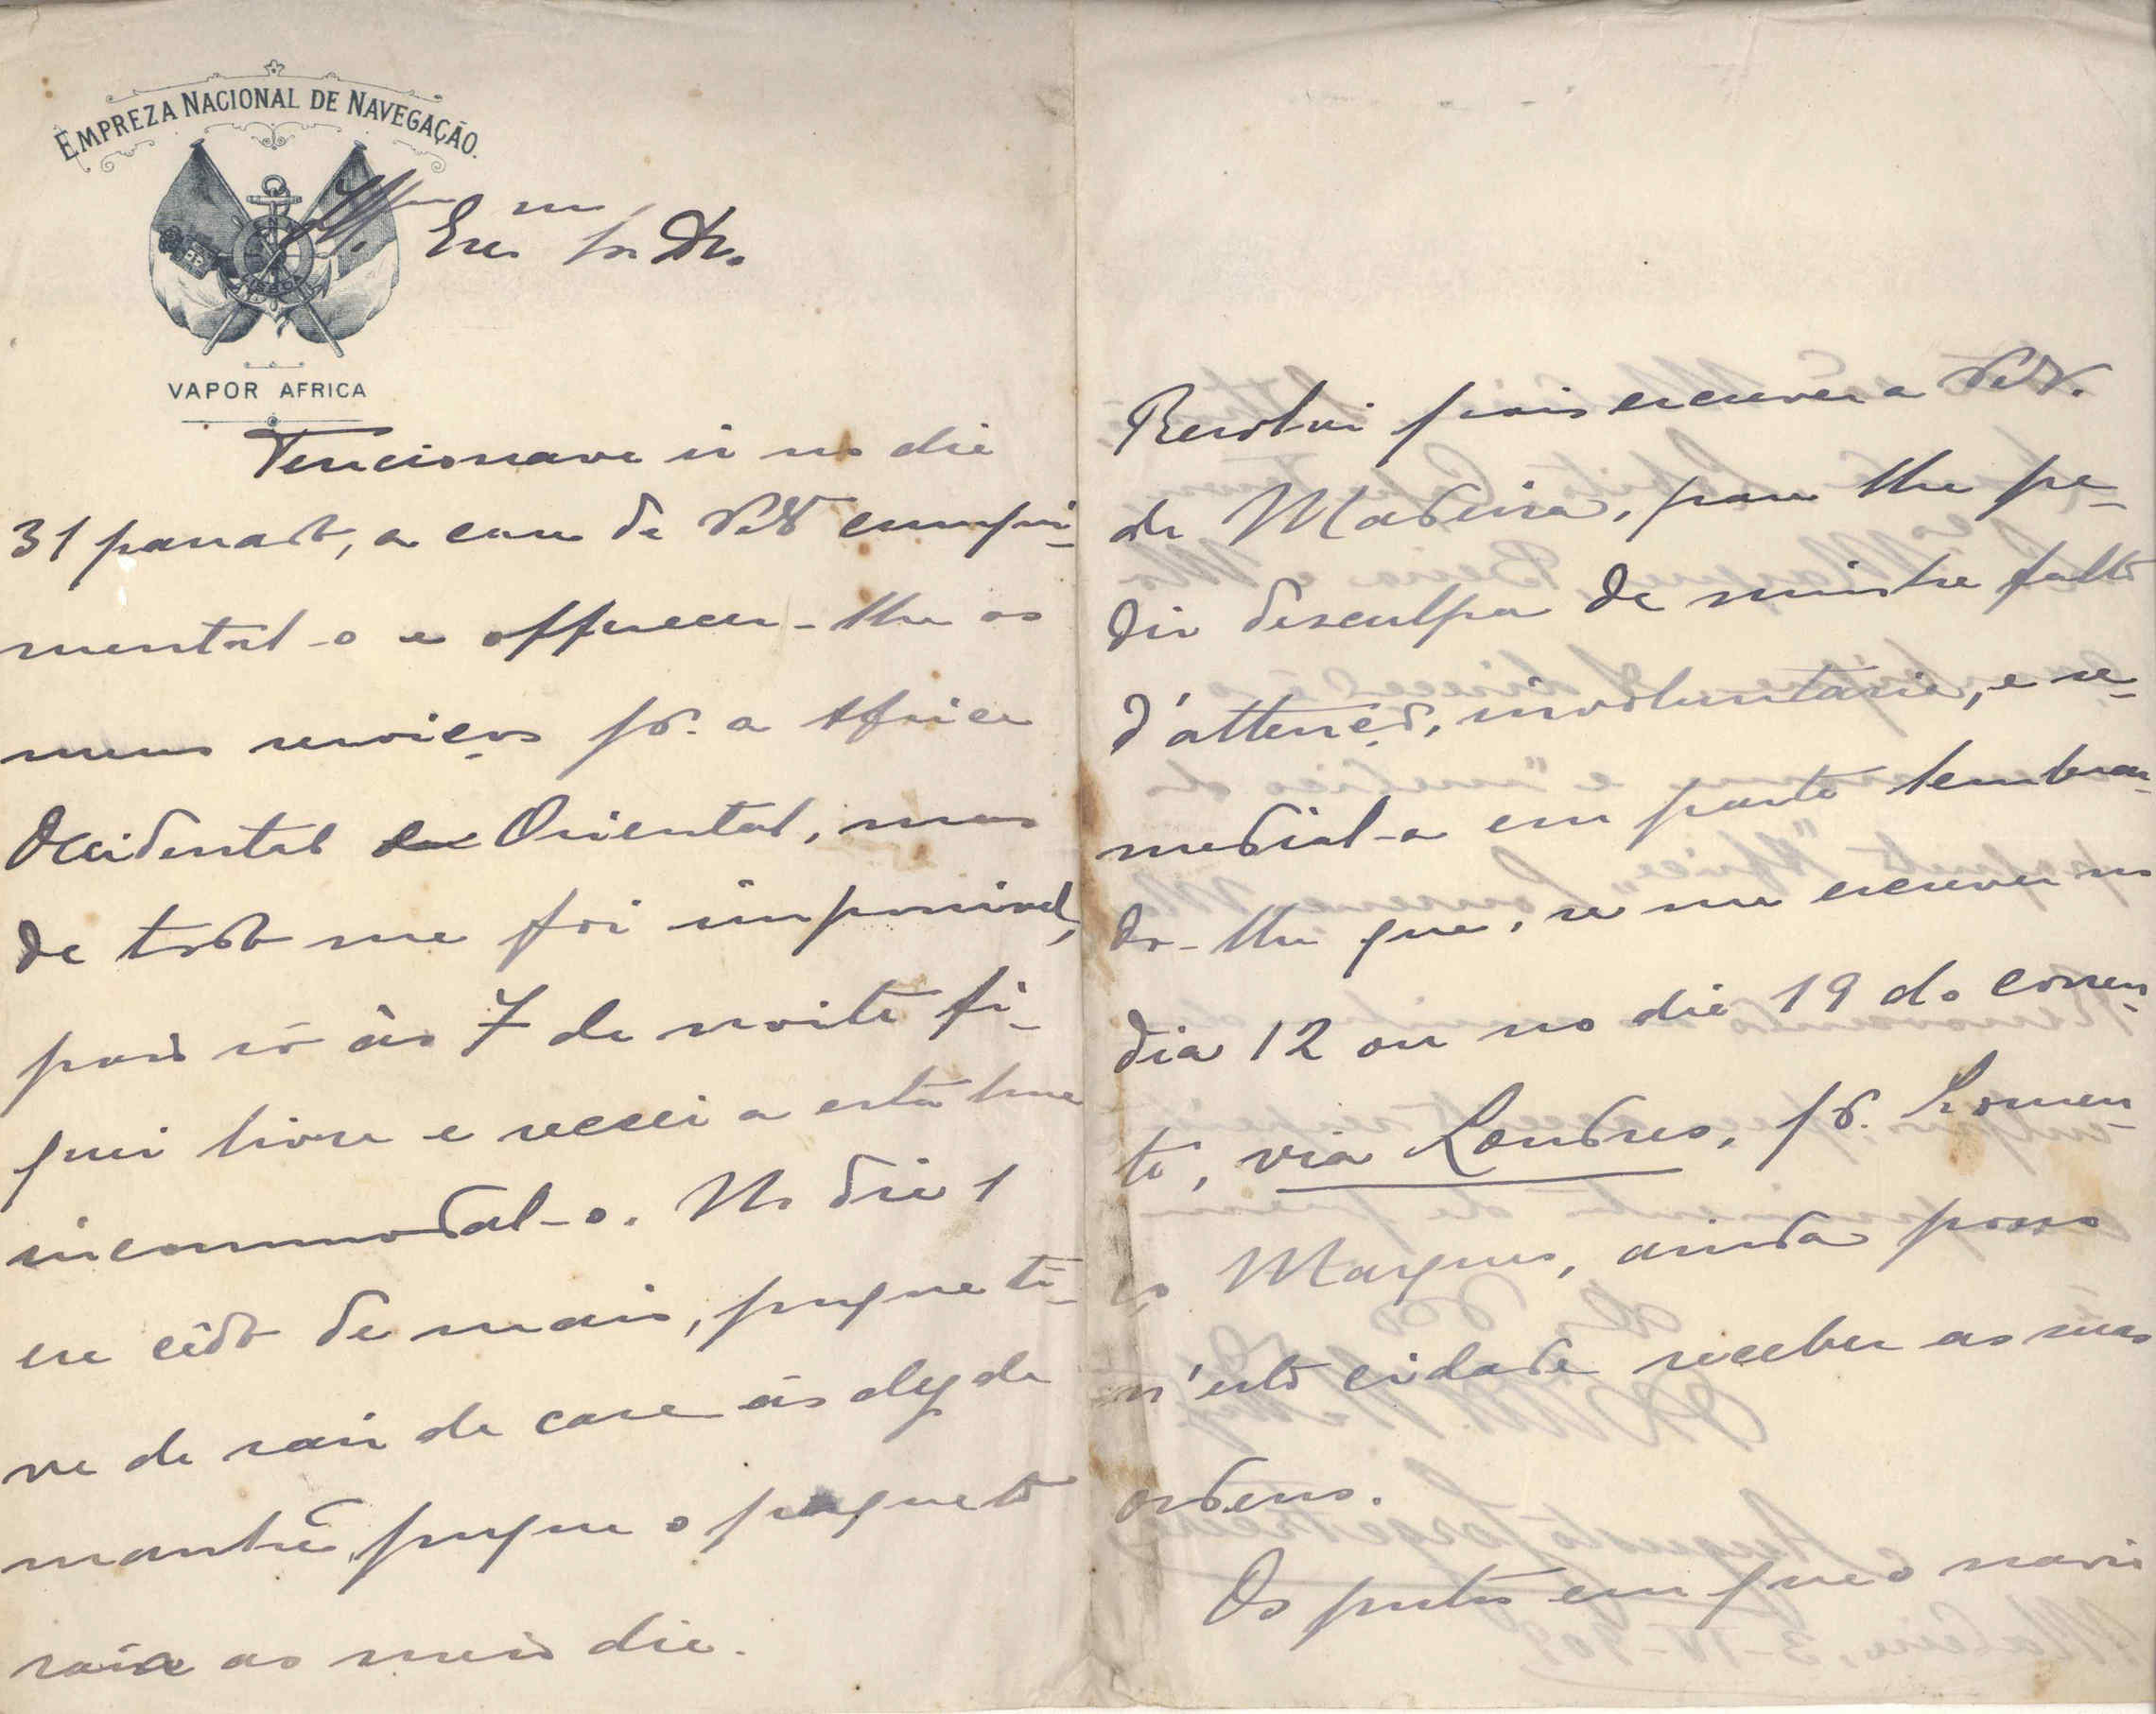 EMPREZA NACIONAL DE NAVEGAÇÃO.
VAPOR AFRICA
Exmo Sr Dr.
Tencionava ir no dia
31 passado, a casa de V. cumpri-
mental-o e offerecer-lhe os
meus serviços pa. a Africa
Occidental e Oriental, mas
de todo me foi impossivel,
pois só ás 7 da noite fi-
quei livre e receei a esta hora
incommodal-o. No dia 1
era cêdo de mais, porque ti-
ve de sair de casa ás dez da
manhã, porque o paquete
saía ao meio dia.
Resolvi pois escrever a V.
da Madeira, para lhe pe-
dir desculpa da minha falta
d'attenção, involuntaria, e re-
medial-a em parte lembran-
do-lhe que, se me escrever no
dia 12 ou no dia 19 do corren-
te, via Londres, pa. Louren-
ço Marques, ainda posso
n'esta cidade receber as suas
ordens.
Os portos em que o navio